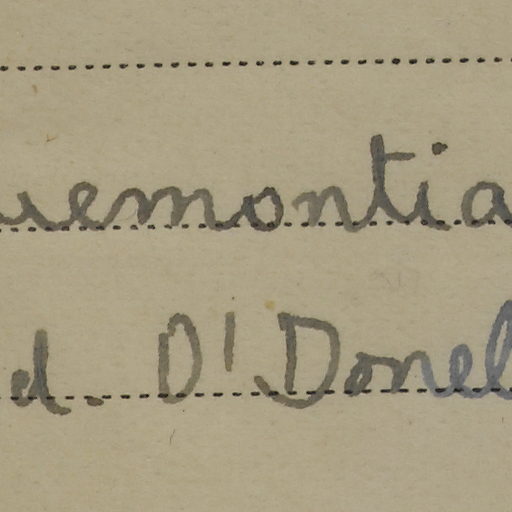 uemontia
d. O'Donel